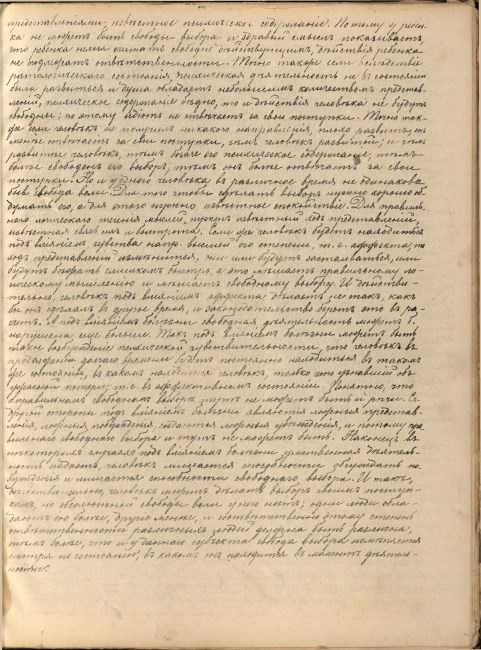 представленiями, извѣстное психическ. содержанiе. Потому у ребен-
ка не можетъ быть свободы выбора и здравый смыслъ показываетъ,
что ребенка нельзя считать свободно дѣйствующимъ; дѣйствiя ребенка
не подлежатъ отвѣтственности. Точно также если вслѣдствiе
патологическаго состоянiя, психическая дѣятельность не въ состоянiи
была развиться и душа обладаетъ небольшимъ количествомъ представ-
ленiй, психическое содержанiе бѣдно, то и дѣйствiя человѣка не будутъ
свободны; поэтому идiотъ не отвѣчаетъ за свои поступки. Точно так-
же если человѣкъ не получилъ никакого направленiя, плохо развитъ, онъ
менѣе отвѣчаетъ за свои поступки, чѣмъ человѣкъ развитой; и чѣмъ
развитѣе человѣкъ, тѣмъ богаче его психическое содержанiе, тѣмъ
болѣе свободенъ его выборъ, тѣмъ онъ болѣе отвѣчаетъ за свои
поступки. Но и у одного человѣка въ различное время не одинакова
быв. свобода воли. Для того чтобы сдѣлать выборъ нужно хорошо об-
думать его, а для этого нужно извѣстное спокойствiе. Для правиль-
наго логическаго теченiя мыслей, нуженъ извѣстный ходъ представленiй,
извѣстная связь ихъ и быстрота. Если же человѣкъ будетъ находиться
подъ влiянiемъ чувства напр. высшей его степени, т. е. аффекта, то
ходъ представленiй измѣнится, они или будутъ застаиваться, или
будутъ возбуждать слишкомъ быстро, а это мѣшаетъ правильному ло-
гическому мышленiю и мѣшаетъ свободному выбору. И дѣйстви-
тельно, человѣкъ подъ влiянiемъ аффекта дѣлаетъ не такъ, какъ
бы онъ сдѣлалъ въ другое время, и законодательство беретъ это въ раз-
счетъ. А подъ влiянiемъ болѣзни свободная дѣятельность можетъ б.
нарушена еще больше. Такъ подъ влiянiемъ болѣзни можетъ быть
такое возбужденiе психической чувствительности, что человѣкъ въ
продолженiи долгаго времени будетъ постоянно находиться въ такомъ
же состоянiи, въ какомъ находится человѣкъ, только что узнавшiй объ
дорогой потерѣ, т. е. въ аффективномъ состоянiи. Понятно, что
о правильномъ свободномъ выборѣ тутъ не можетъ быть и рѣчи. Съ
другой стороны подъ влiянiемъ болѣзни являются ложныя представ-
ленiя, ложныя побужденiя, создаются ложныя убѣжденiя, и потому пра-
вильнаго свободнаго выбора и тутъ не можетъ быть. Наконецъ въ
нѣкоторыхъ случаяхъ подъ влiянiемъ болѣзни умственная дѣятель-
ность падаетъ, человѣкъ лишается способности задерживать по-
бужденiя и лишается способности свободнаго выбора. И такъ,
дѣйствительно, человѣкъ можетъ дѣлать выборъ своимъ поступ-
камъ, но абсолютной свободы воли у него нѣтъ; одни люди обла-
даютъ ею болѣе, другiе менѣе, и соотвѣтственно этому степень
отвѣтственности различныхъ людей должна быть различна,
тѣмъ болѣе, что и у даннаго субъекта свобода выбора измѣняется
смотря по состоянiю, въ какомъ онъ находится въ моментъ дѣятель-
ности.